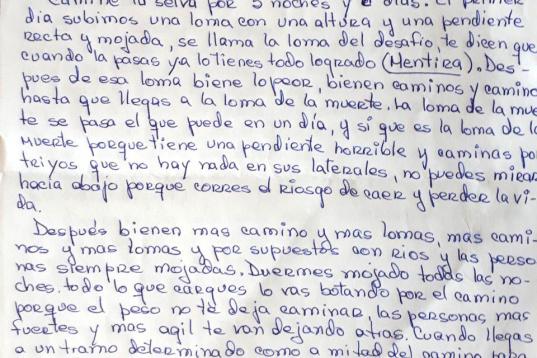 la selva por 5 noches y 6 dias. El primer
dia subimos una loma con una altura y una pendiente
recta y mojada, se llama la loma del desafio, te dicen que
cuando la pasas ya lo tienes todo logrado (Mentira). Des-
pues de esa loma biene lo peor, bienen caminos y camino
hasta que llegas a la loma de la muerte. La loma de la mue
te se pasa el que puede en un dia, y si que es la loma de la
muerte porque tiene una pendiente horrible y caminas po
triyos que no hay nada en sus laterales, no puedes mirar
hacia abajo porque corres el riosgo de caer y perder la vi-
da.
Después bienen mas camino y mas lomas, mas cami-
nos y mas lomas y por supuestos con rios y las perso
nas siempre mojadas. Duermes mojado todas las no-
ches. todo lo que cargues lo vas botando por el camino
porque el peso no te deja caminar, las personas mas
fuertes y mas agil te van dejando atras. Cuando llegas
a un tramo determinado como a mitad del camino